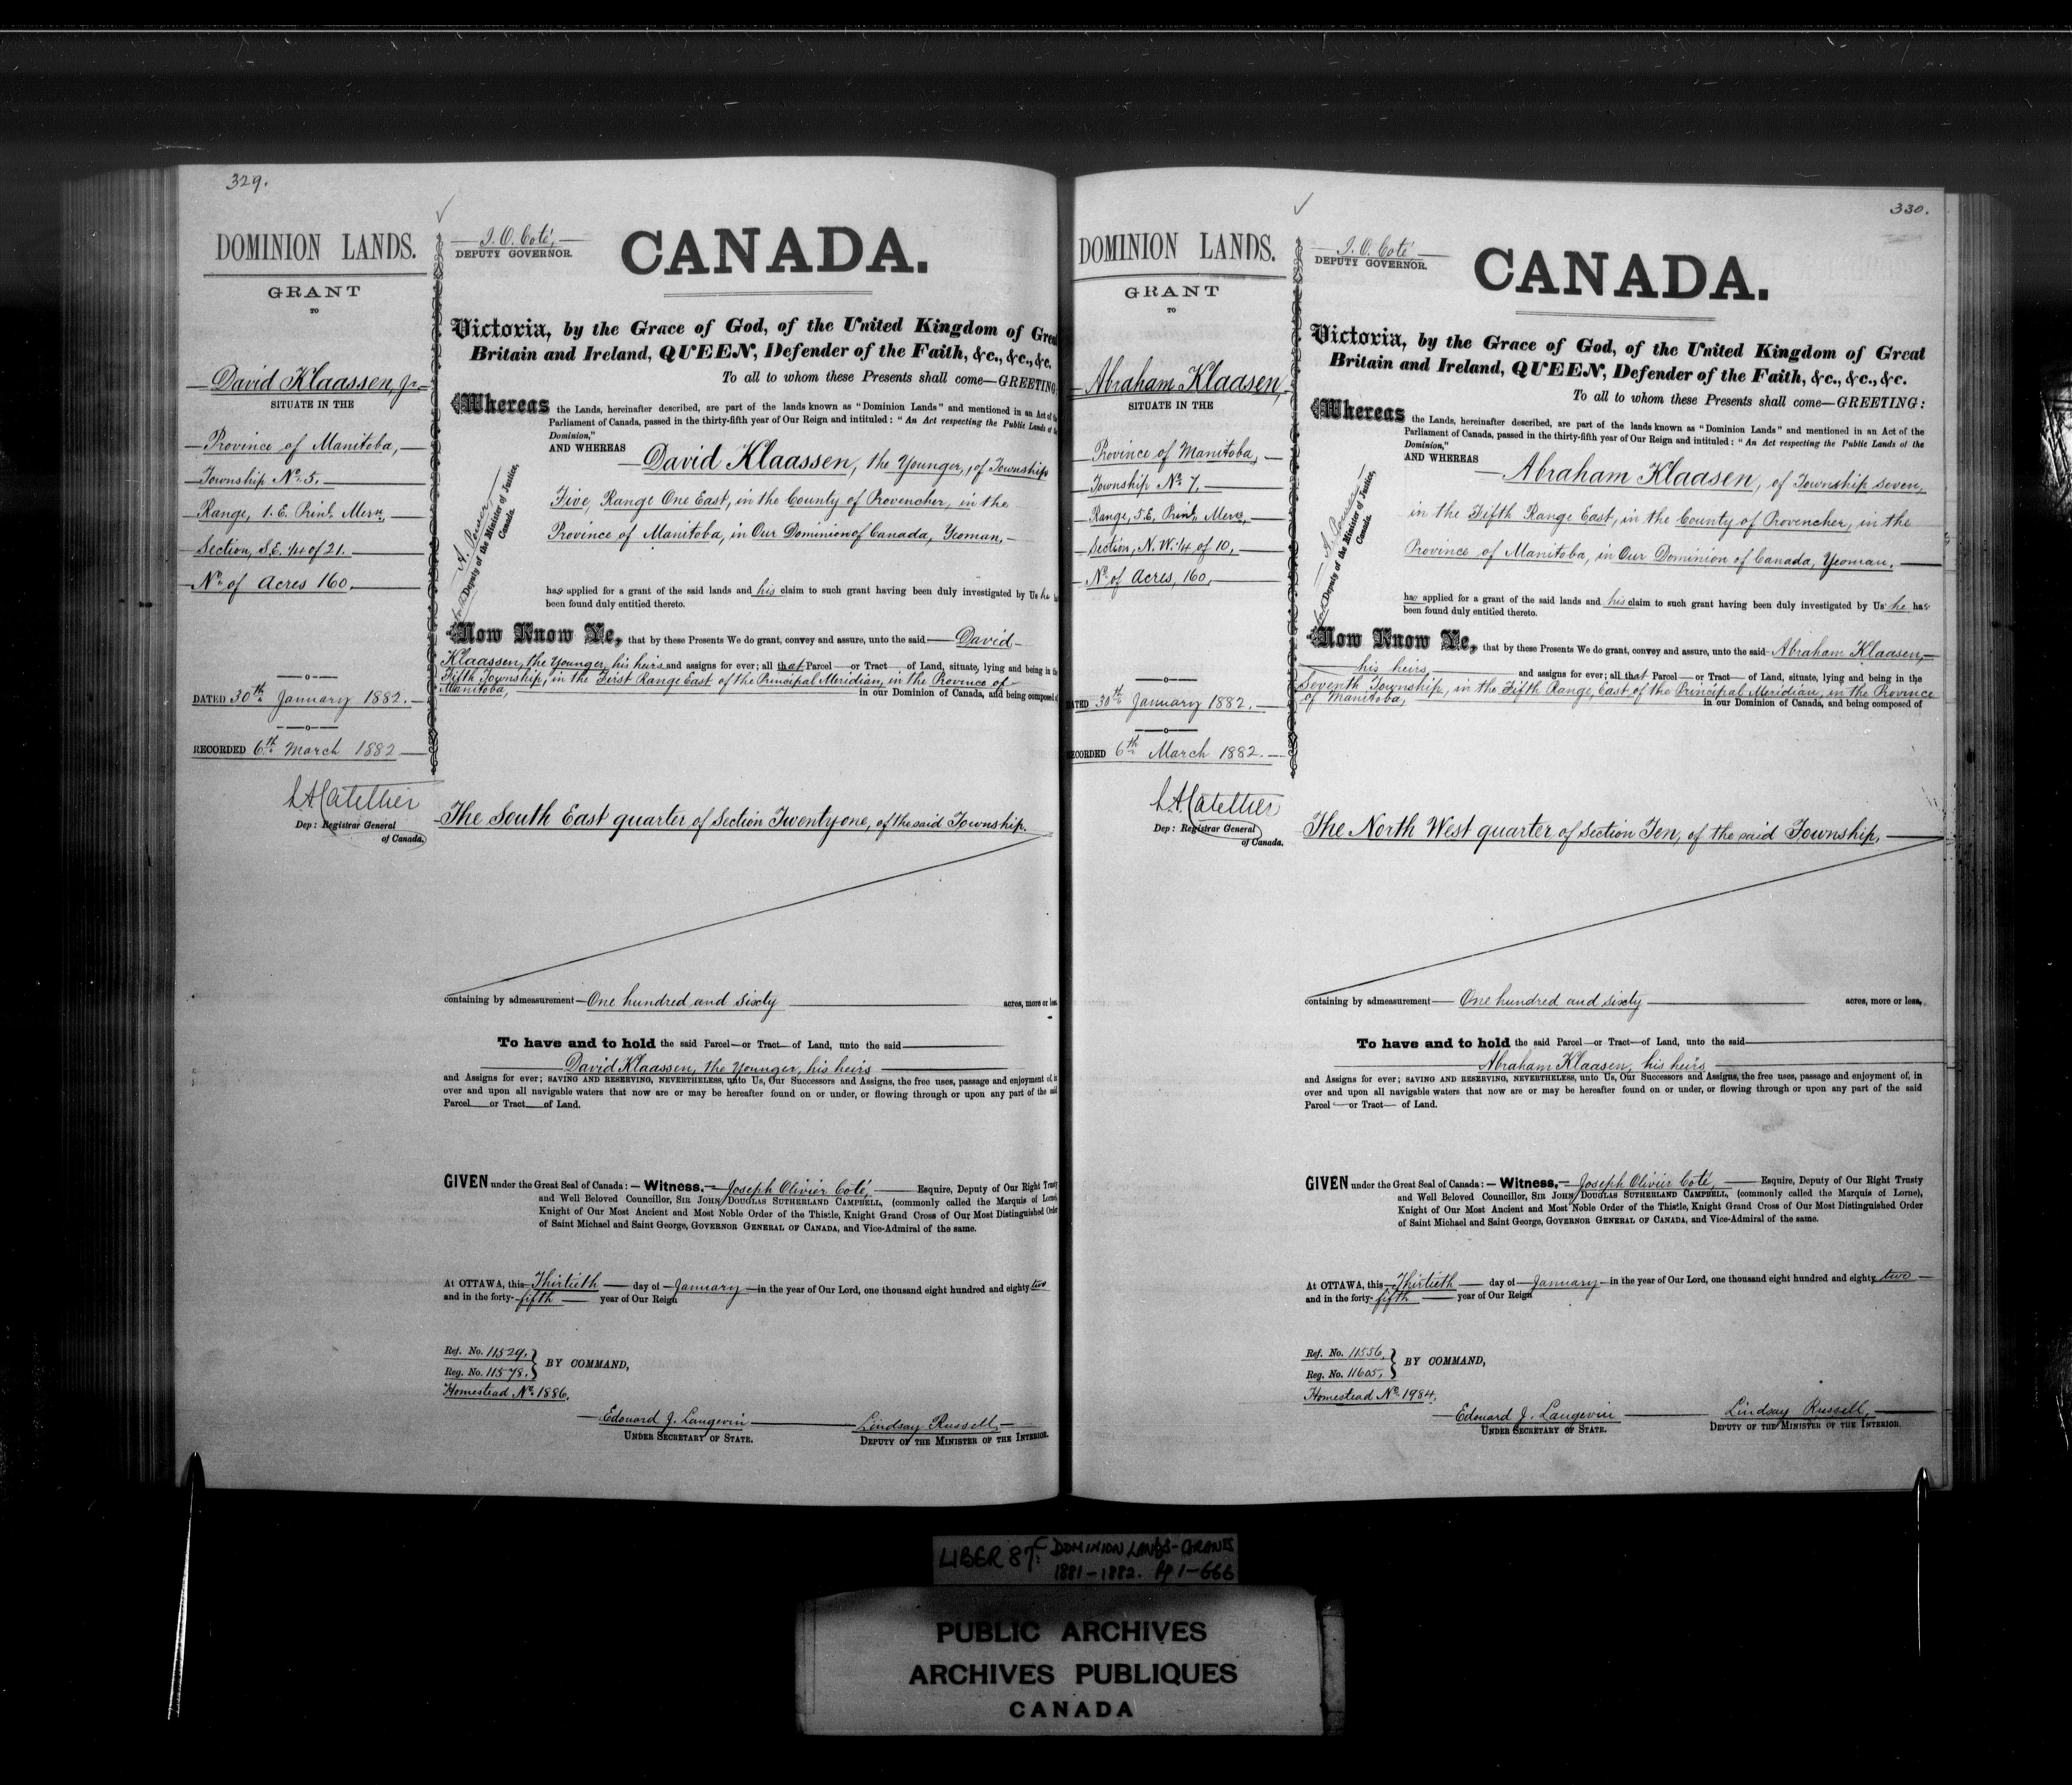 329.
DOMINION LANDS.
GRANT
TO
David Klaassen, Jr.
SITUATE IN THE
Province of Manitoba,
Township No. 5.
Range, 1. E. Prinl. Mern.
Section, S.E. 1/4 of 21.
No. of Acres 160.
DATED 30th January 1882.
RECORDED 6th March 1882
Dep: Registrar General
of Canada.
J. O. Coté,
DEPUTY GOVERNOR.
CANADA.
Victoria, by the Grace of God, of the United Kingdom of Grea
Britain and Ireland, QUEEN, Defender of the Faith, &c., &c., &c.
To all to whom these Presents shall come—GREETING
Whereas the Lands, hereinafter described, are part of the lands known as "Dominion Lands" and mentioned in an Act of the
Parliament of Canada, passed in the thirty-fifth year of Our Reign and intituled: "An Act respecting the Public Lands of the
Dominion,"
AND WHEREAS
David Klaassen, the Younger, of Township
Five, Range One East, in the County of Provencher, in the
Province of Manitoba, in Our Dominion of Canada, Yeoman,
A. Power
for Deputy of the Minister of Justice,
Canada.
has applied for a grant of the said lands and his claim to such grant having been duly investigated by Us he ha
been found duly entitled thereto.
Now Know Ye, that by these Presents We do grant, convey and assure, unto the said David
Klaassen, the Younger, his heirs and assigns for ever; all that Parcel or Tract of Land, situate, lying and being in the
Fifth Township, in the First Range East of the Principal Meridian, in the Province of
Manitoba, in our Dominion of Canada, and being composed of
The South East quarter of Section Twenty one, of the said Township.
containing by admeasurement One hundred and sixty acres, more or less
To have and to hold the said Parcel or Tract of Land, unto the said
David Klaassen, the Younger, his heirs
and Assigns for ever; SAVING AND RESERVING, NEVERTHELESS, unto Us, Our Successors and Assigns, the free uses, passage and enjoyment of, in
over and upon all navigable waters that now are or may be hereafter found on or under, or flowing through or upon any part of the said
Parcel or Tract of Land.
GIVEN under the Great Seal of Canada: — Witness, Joseph Olivier Coté, Esquire, Deputy of Our Right Trusty
and Well Beloved Councillor, SIR JOHN DOUGLAS SUTHERLAND CAMPBELL, (commonly called the Marquis of Lorne),
Knight of Our Most Ancient and Most Noble Order of the Thistle, Knight Grand Cross of Our Most Distinguished Order
of Saint Michael and Saint George, GOVERNOR GENERAL OF CANADA, and Vice-Admiral of the same.
At OTTAWA, this Thirtieth day of January in the year of Our Lord, one thousand eight hundred and eighty two
and in the forty-fifth year of Our Reign
Ref. No. 11529.
Reg. No. 11578.
BY COMMAND,
Homestead No. 1886.
Edouard J. Langevin
UNDER SECRETARY OF STATE.
Lindsay Russell
DEPUTY OF THE MINISTER OF THE INTERIOR.
330.
DOMINION LANDS.
GRANT
TO
Abraham Klaasen,
SITUATE IN THE
Province of Manitoba,
Township No. 7,
Range, 5. E. Prinl. Mern.
Section, N. W. 1/4 of 10,
No. of Acres, 160,
DATED 30th January 1882.
RECORDED 6th March 1882.
Dep: Registrar General
of Canada.
J. O. Coté
DEPUTY GOVERNOR.
CANADA.
Victoria, by the Grace of God, of the United Kingdom of Great
Britain and Ireland, QUEEN, Defender of the Faith, &c., &c., &c.
To all to whom these Presents shall come—GREETING:
Whereas the Lands, hereinafter described, are part of the lands known as "Dominion Lands" and mentioned in an Act of the
Parliament of Canada, passed in the thirty-fifth year of Our Reign and intituled: "An Act respecting the Public Lands of the
Dominion,"
AND WHEREAS
Abraham Klaasen, of Township Seven,
in the Fifth Range East, in the County of Provencher, in the
Province of Manitoba, in Our Dominion of Canada, Yeoman.
A. Power
for Deputy of the Minister of Justice,
Canada.
has applied for a grant of the said lands and his claim to such grant having been duly investigated by Us he has
been found duly entitled thereto.
Now Know Ye, that by these Presents We do grant, convey and assure, unto the said Abraham Klaasen,
his heirs and assigns for ever; all that Parcel or Tract of Land, situate, lying and being in the
Seventh Township, in the Fifth Range, East of the Principal Meridian, in the Province
of Manitoba, in our Dominion of Canada, and being composed of
The North West quarter of Section Ten, of the said Township,
containing by admeasurement One hundred and sixty acres, more or less,
To have and to hold the said Parcel or Tract of Land, unto the said
Abraham Klaasen, his heirs
and Assigns for ever; SAVING AND RESERVING, NEVERTHELESS, unto Us, Our Successors and Assigns, the free uses, passage and enjoyment of, in
over and upon all navigable waters that now are or may be hereafter found on or under, or flowing through or upon any part of the said
Parcel or Tract of Land.
GIVEN under the Great Seal of Canada: — Witness, Joseph Olivier Coté, Esquire, Deputy of Our Right Trusty
and Well Beloved Councillor, SIR JOHN DOUGLAS SUTHERLAND CAMPBELL, (commonly called the Marquis of Lorne),
Knight of Our Most Ancient and Most Noble Order of the Thistle, Knight Grand Cross of Our Most Distinguished Order
of Saint Michael and Saint George, GOVERNOR GENERAL OF CANADA, and Vice-Admiral of the same.
At OTTAWA, this Thirtieth day of January in the year of Our Lord, one thousand eight hundred and eighty two
and in the forty-fifth year of Our Reign
Ref. No. 11556,
Reg. No. 11605,
BY COMMAND,
Homestead No. 1984,
Edouard J. Langevin
UNDER SECRETARY OF STATE.
Lindsay Russell,
DEPUTY OF THE MINISTER OF THE INTERIOR.
LIBER 87C: DOMINION LANDS-GRANTS
1881-1882. Pg 1-666
PUBLIC ARCHIVES
ARCHIVES PUBLIQUES
CANADA